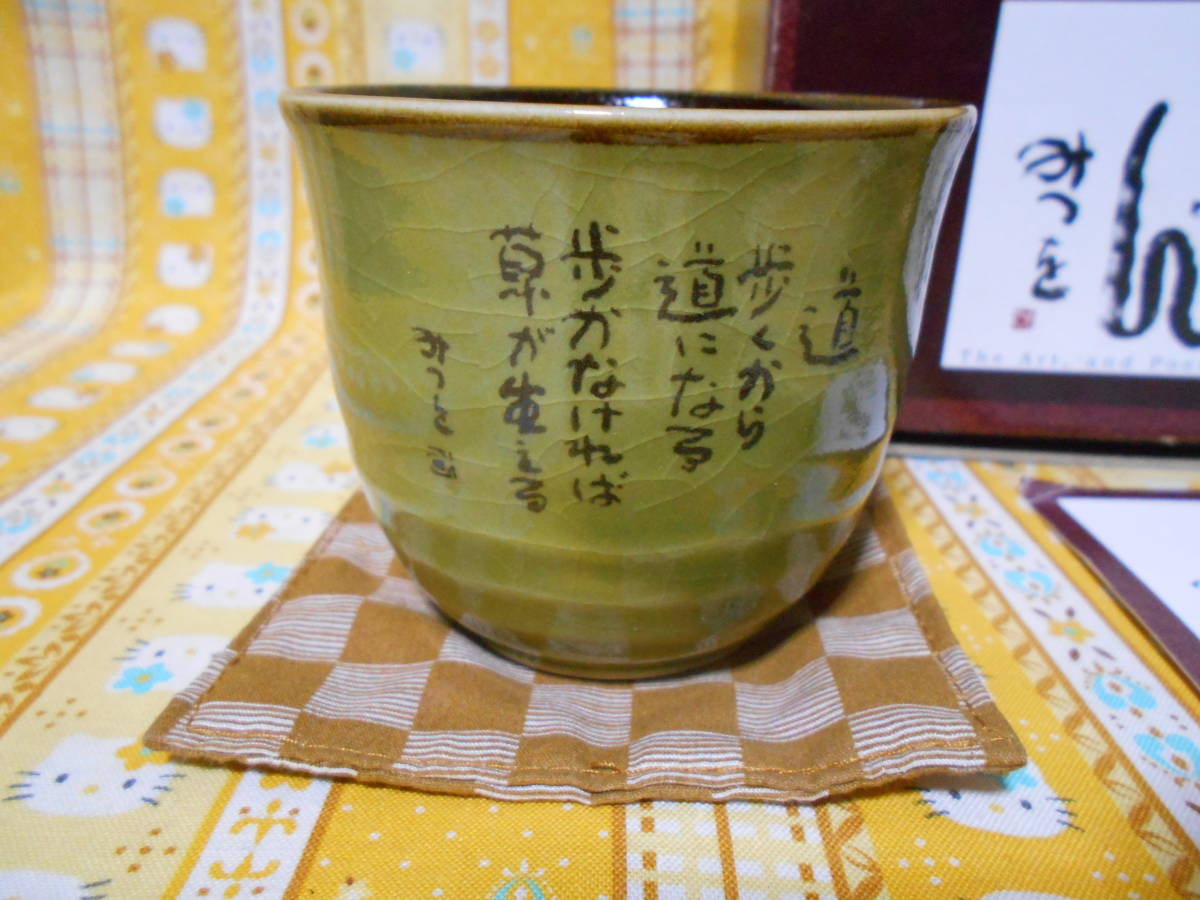 道
歩くから
道になる
歩かなければ
草が生える
みつを
みつを
The Art, and Poe